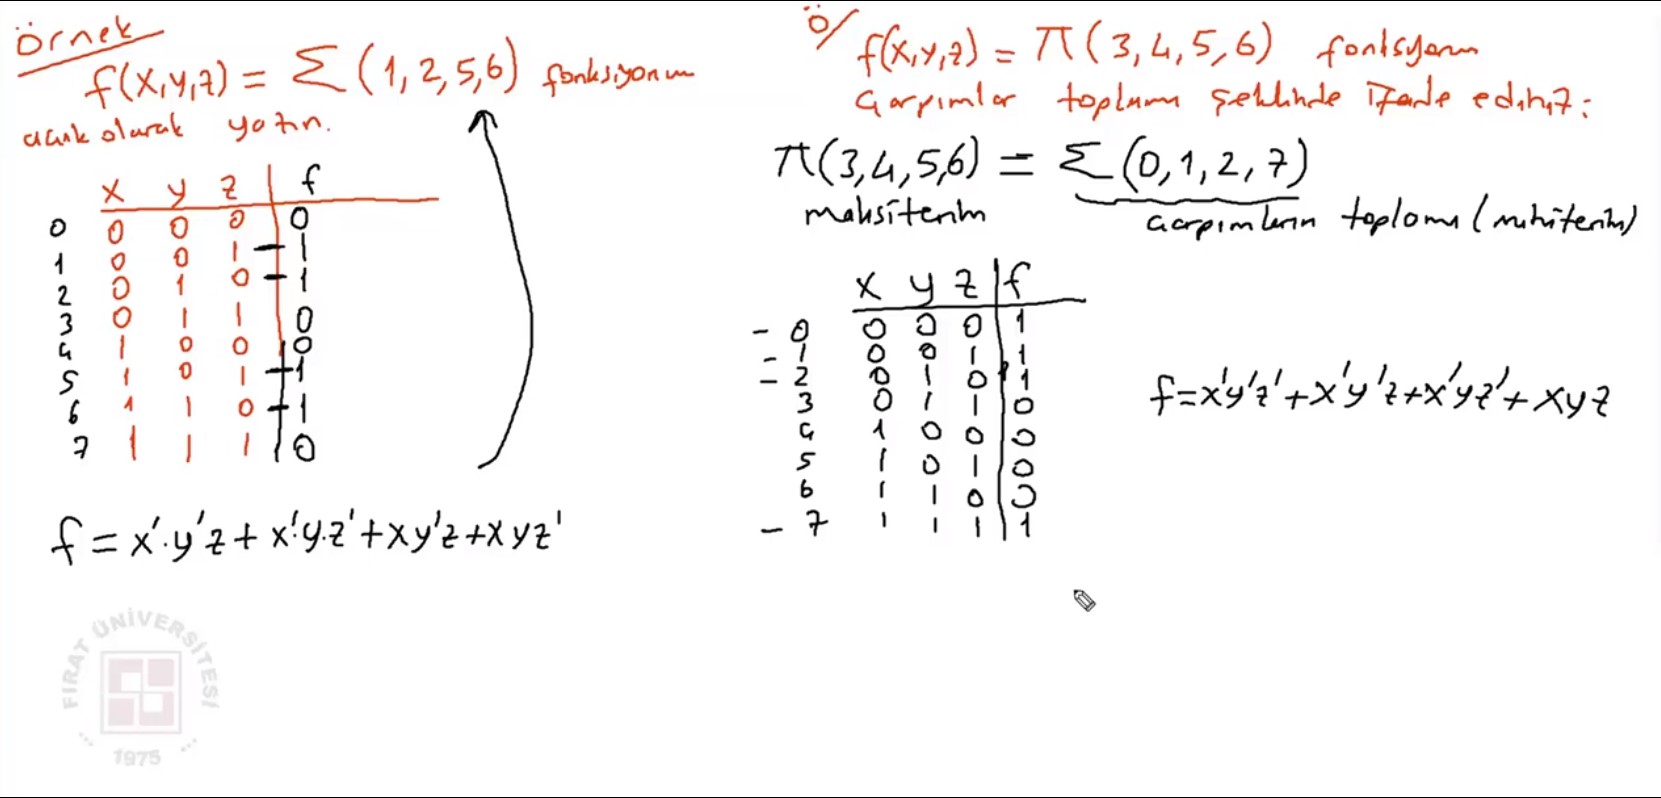 Örnek
f(x,y,z) = Σ (1,2,5,6) fonksiyonun
açık olarak yazın.
x y z f
0 0 0 0 0
1 0 0 1 1
2 0 1 0 1
3 0 1 1 0
4 1 0 0 0
5 1 0 1 1
6 1 1 0 1
7 1 1 1 0
f = x'.y'z + x'.y.z' + xy'z + xyz'
FIRAT ÜNİVERSİTESİ
1975
Ö/ f(x,y,z) = π(3,4,5,6) fonksiyonu
çarpımlar toplamı şeklinde ifade ediniz:
π(3,4,5,6) = Σ(0,1,2,7)
maksiterim çarpımların toplamı (miniterim)
x y z f
- 0 0 0 0 1
- 1 0 0 1 1
- 2 0 1 0 1
3 0 1 1 0
4 1 0 0 0
5 1 0 1 0
6 1 1 0 0
- 7 1 1 1 1
f=x'y'z' + x'y'z + x'yz' + xyz